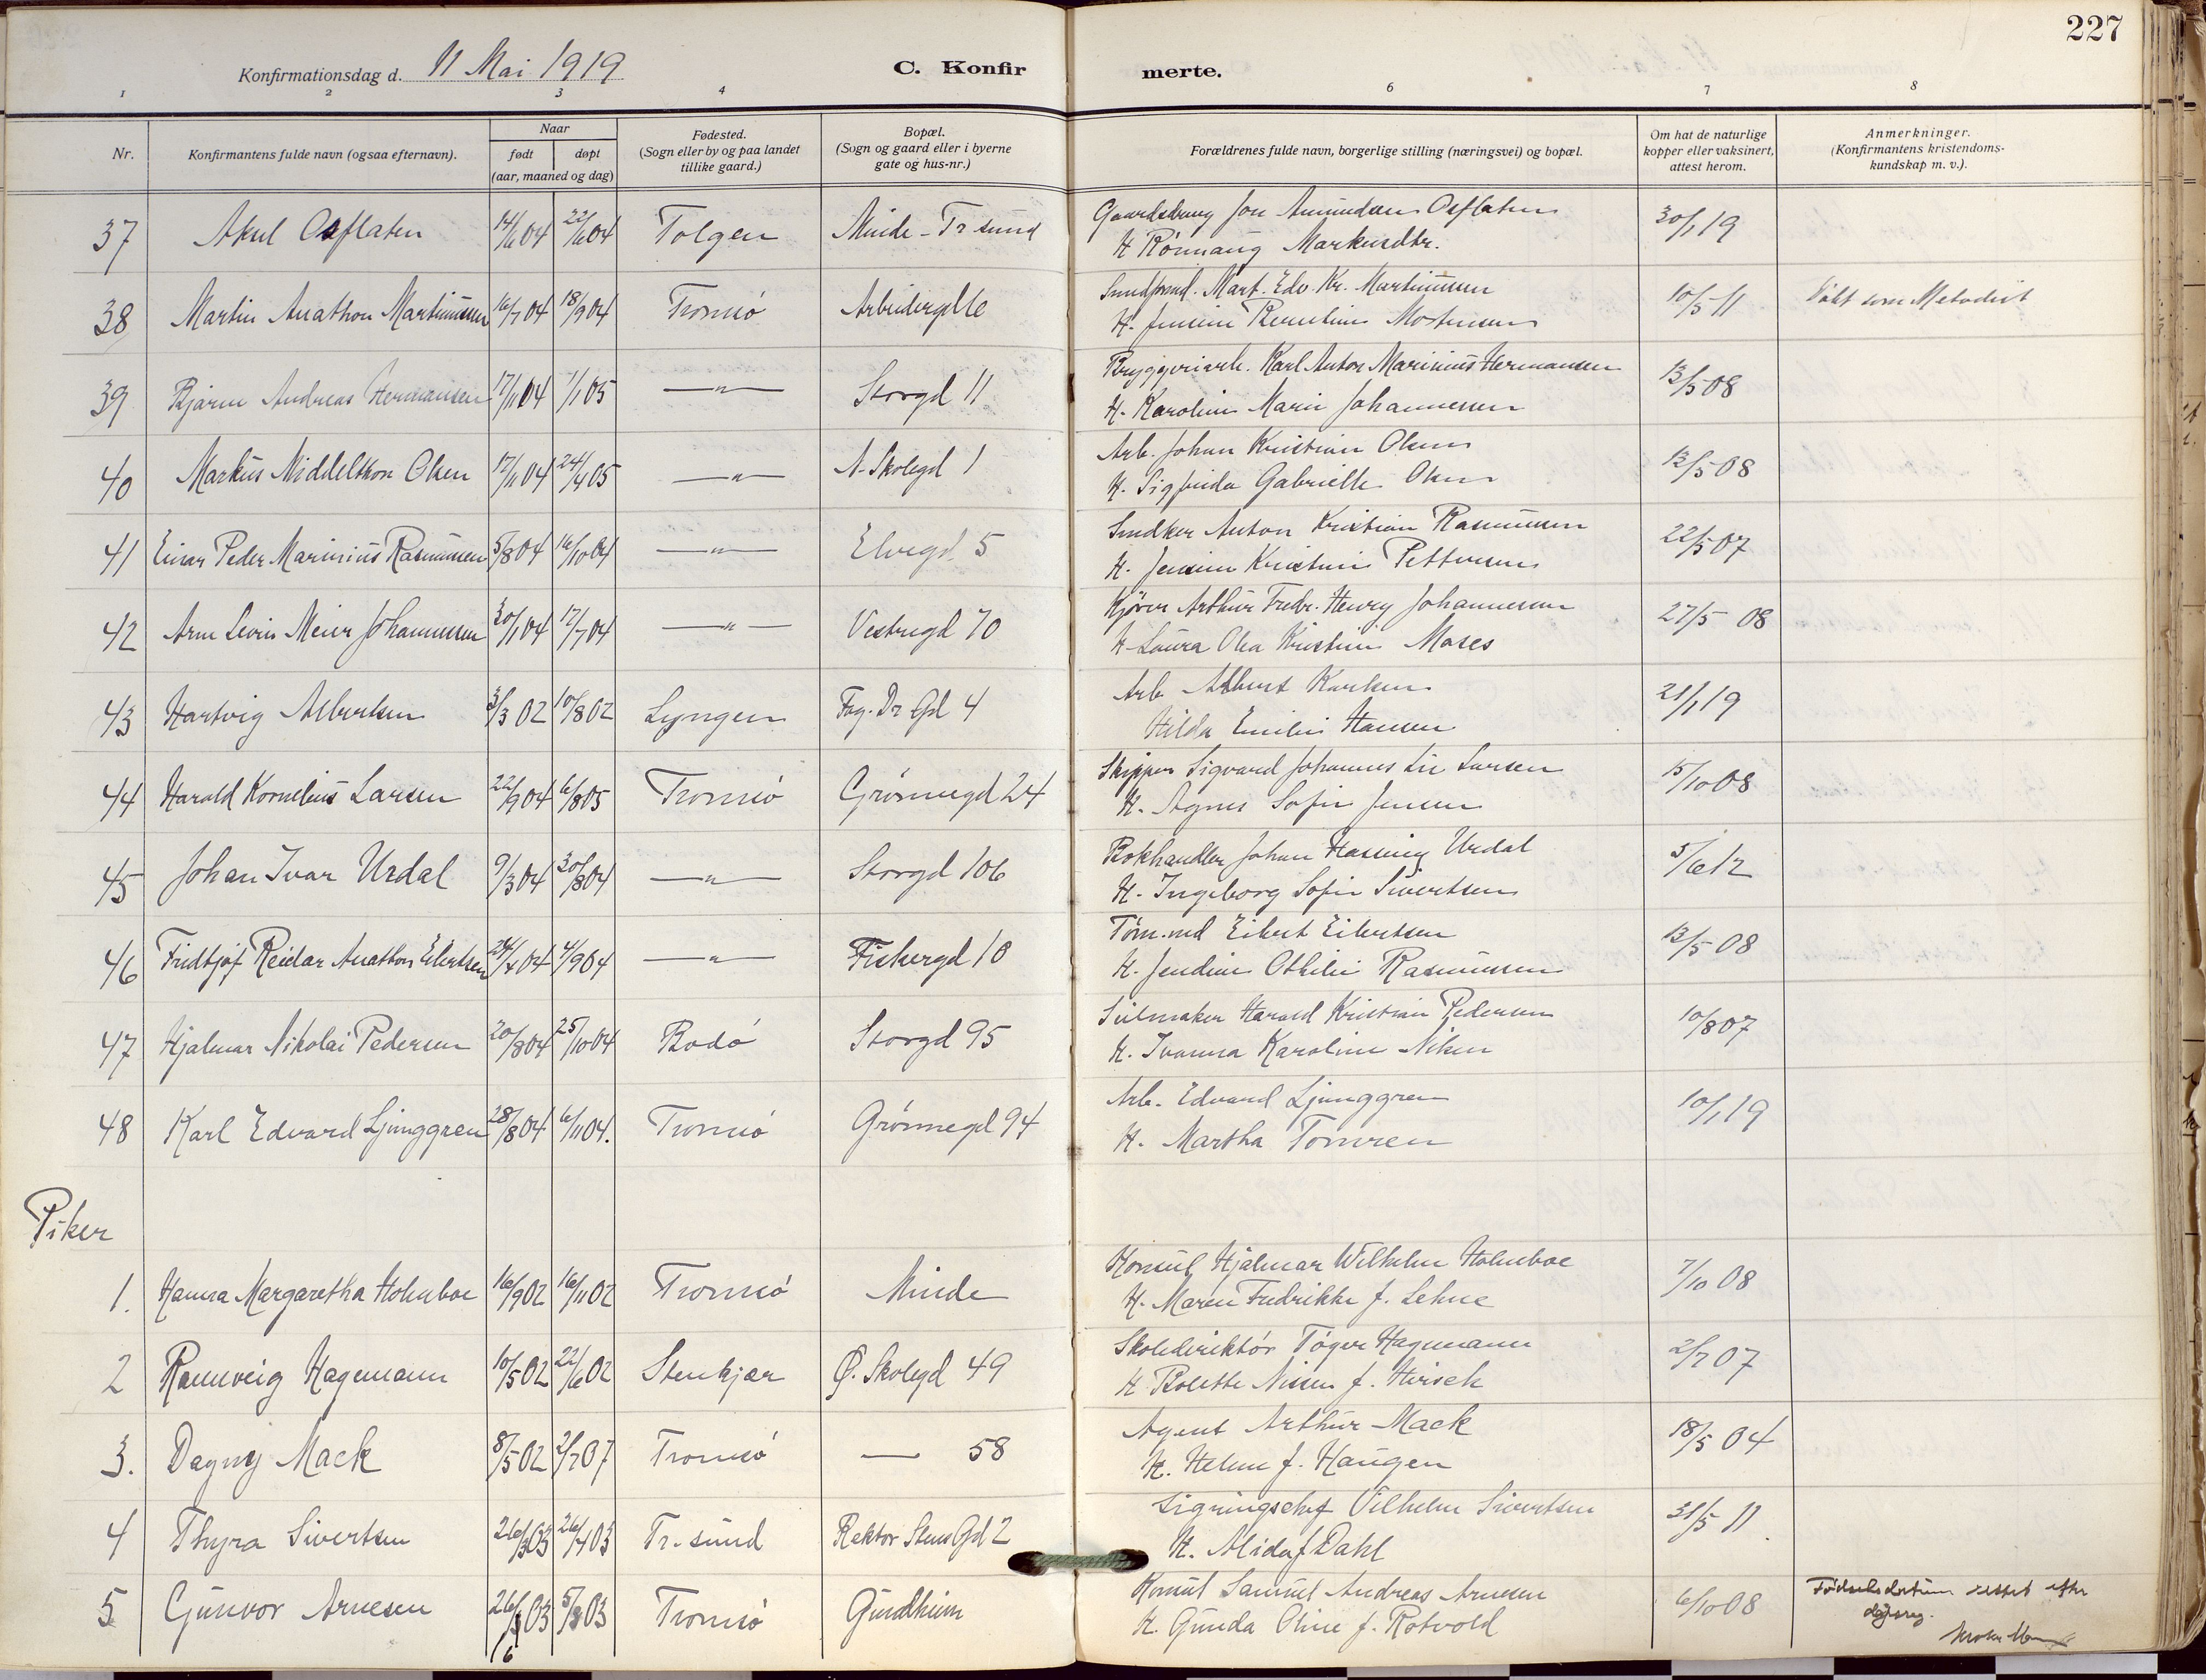 227
Konfirmationsdag d. 11 Mai 1919
C. Konfir merte.
1 2 3 4 6 7 8
Nr.
Konfirmantens fulde navn (ogsaa efternavn).
Naar
født døpt
(aar, maaned og dag)
Fødested.
(Sogn eller by og paa landet
tillike gaard.)
Bopæl.
(Sogn og gaard eller i byerne
gate og hus-nr.)
Forældrenes fulde navn, borgerlige stilling (næringsvei) og bopæl.
Om hat de naturlige
kopper eller vaksinert,
attest herom.
Anmerkninger.
(Konfirmantens kristendoms-
kundskap m. v.).
37 Aksel Osflaten 14/6 04 22/6 04 Tolgen Minde - Tr sund Jon Amundsen Osflaten 30/1 19
H Rønnaug Markusdtr.
38 Martin Anathon Martinussen 16/7 04 18/9 04 Tromsö Mart. Edv. Kr. Martinussen 10/5 11 Døbt som Metodist
H. Jensine Berntine Mortensen
39 Bjarne Andreas Hermansen 17/11 04 1/1 05 —„— Storgd 11 Bryggeriarb. Karl Anton Marinius Hermansen 13/5 08
H. Karoline Marie Johannessen
40 Markus Middelthon Olsen 17/11 04 24/4 05 —„— N. Skolegd 1 Arb. Johan Kristian Olsen 13/5 08
H. Sigfrida Gabrielle Olsen
41 Einar Peder Marinius Rasmussen 5/8 04 16/10 04 —„— Elvegd. 5 Snedker Anton Kristian Rasmussen 22/5 07
H. Jensine Kristine Pettersen
42 Arne Levin Meier Johannessen 30/1 04 17/7 04 —„— Vestregd 70 Kjører Arthur Fredr. Henry Johannessen 27/5 08
H Laura Olea Kristine Moses
43 Hartvig Albertsen 3/3 02 10/8 02 Lyngen Fog. Dr Gd 4 Arb Albert Karlsen 21/1 19
Hilda Emilie Hansen
44 Harald Kornelius Larsen 22/9 04 6/8 05 Tromsö Grønnegd 24 Skipper Sigvard Johannes Lie Larsen 15/10 08
H. Agnes Sofie Jensen
45 Johan Ivar Urdal 9/3 04 30/8 04 —„— Storgd 106 Bokhandler Johan Hassing Urdal 5/6 12
H. Ingeborg Sofie Sivertsen
46 Fridtjof Reidar Anathon Eilertsen 24/4 04 4/9 04 —„— Fiskergd 10 Tøm.md Eilert Eilertsen 13/5 08
H. Jendine Othilie Rasmussen
47 Hjalmar Nikolai Pedersen 20/8 04 25/10 04 Bodö Storgd 95 Seilmaker Harald Kristian Pedersen 10/8 07
H. Ivanna Karoline Nilsen
48 Karl Edvard Ljunggren 28/8 04 6/11 04. Tromsö Grønnegd 94 Arb. Edvard Ljunggren 10/1 19
H. Martha Tomren
Piker
1. Hanna Margaretha Holmboe 16/9 02 16/11 02 Tromsö Minde Konsul Hjalmar Wilhelm Holmboe 7/10 08
H. Maren Fredrikke f. Lehne
2 Rannveig Hagemann 10/5 02 22/6 02 Stenkjær Ø. Skolegd 49 Skoledirektör Töger Hagemann 2/7 07
H Bolette Nissen f. Hirsch
3. Dagny Mack 8/5 02 2/7 07 Tromsö — 58 Agent Arthur Mack 18/5 04
H. Helene f. Haugen
4 Thyra Sivertsen 26/3 03 26/4 03 Tr. sund Rektor Stens Gd 2 Ligningschef Vilhelm Sivertsen 31/5 11
H. Alida f Dahl
5 Gunvor Arnesen 26/ 03 5/8 03 Tromsö Gundheim Konsul Samuel Andreas Arnesen 6/10 08 Fødselsdatum rettet efter
6 H. Gunda Oline f. Rotvold dåpsreg.